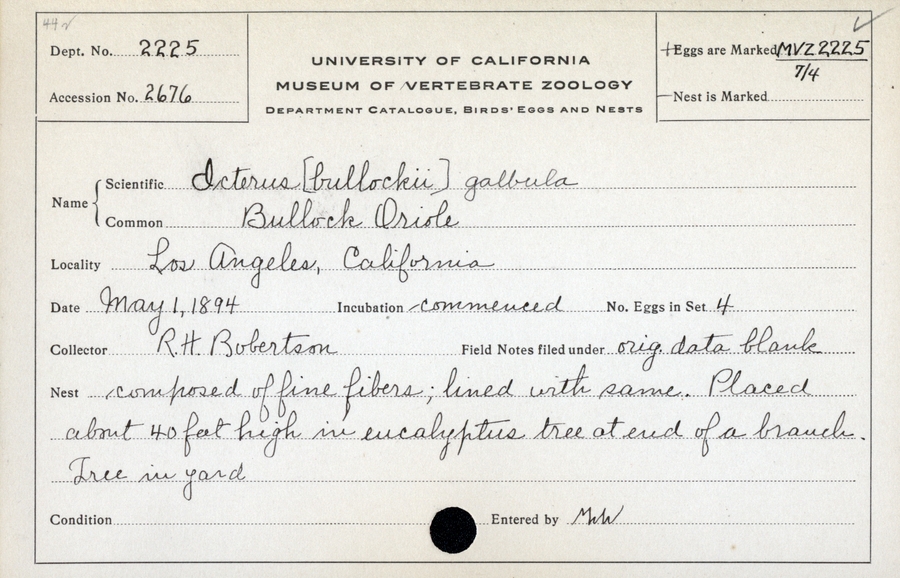 44
Dept. No. 2225
Accession No. 2676
UNIVERSITY OF CALIFORNIA
MUSEUM OF VERTEBRATE ZOOLOGY
DEPARTMENT CATALOGUE, BIRDS' EGGS AND NESTS
Eggs are Marked MVZ 2225
7/4
Nest is Marked
Name
Scientific Icterus [bullockii] galbula
Common Bullock Oriole
Locality Los Angeles, California
Date May 1, 1894 Incubation commenced No. Eggs in Set 4
Collector R.H. Bobertson Field Notes filed under orig. data blank
Nest composed of fine fibers; lined with same. Placed
about 40 feet high in eucalyptus tree at end of a branch.
Tree in yard
Condition Entered by